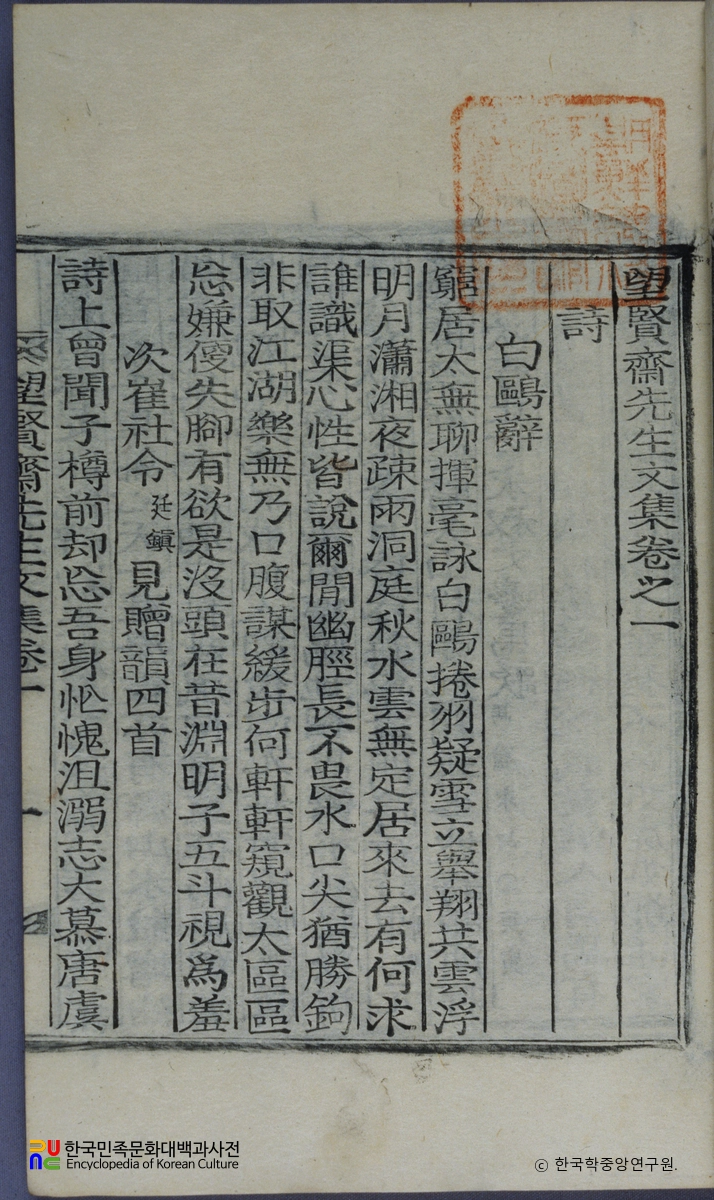 望賢齋先生文集卷之一
詩
白鷗辭
窮居太無聊揮毫詠白鷗捲羽疑雪立擧翔共雲浮
明月瀟湘夜疎雨洞庭秋水雲無定居來去有何求
誰識渠心性皆說爾閒幽脛長不畏水口尖猶勝鉤
非取江湖樂無乃口腹謀緩步何軒軒窺觀太區區
忘嫌傻失脚有欲是沒頭在昔淵明子五斗視爲羞
次崔社令廷鎭見贈韻四首
詩上曾聞子樽前却忘吾身忙愧沮溺志大慕唐虞
望賢齋先生文集卷一 一
한국민족문화대백과사전
Encyclopedia of Korean Culture
ⓒ 한국학중앙연구원.